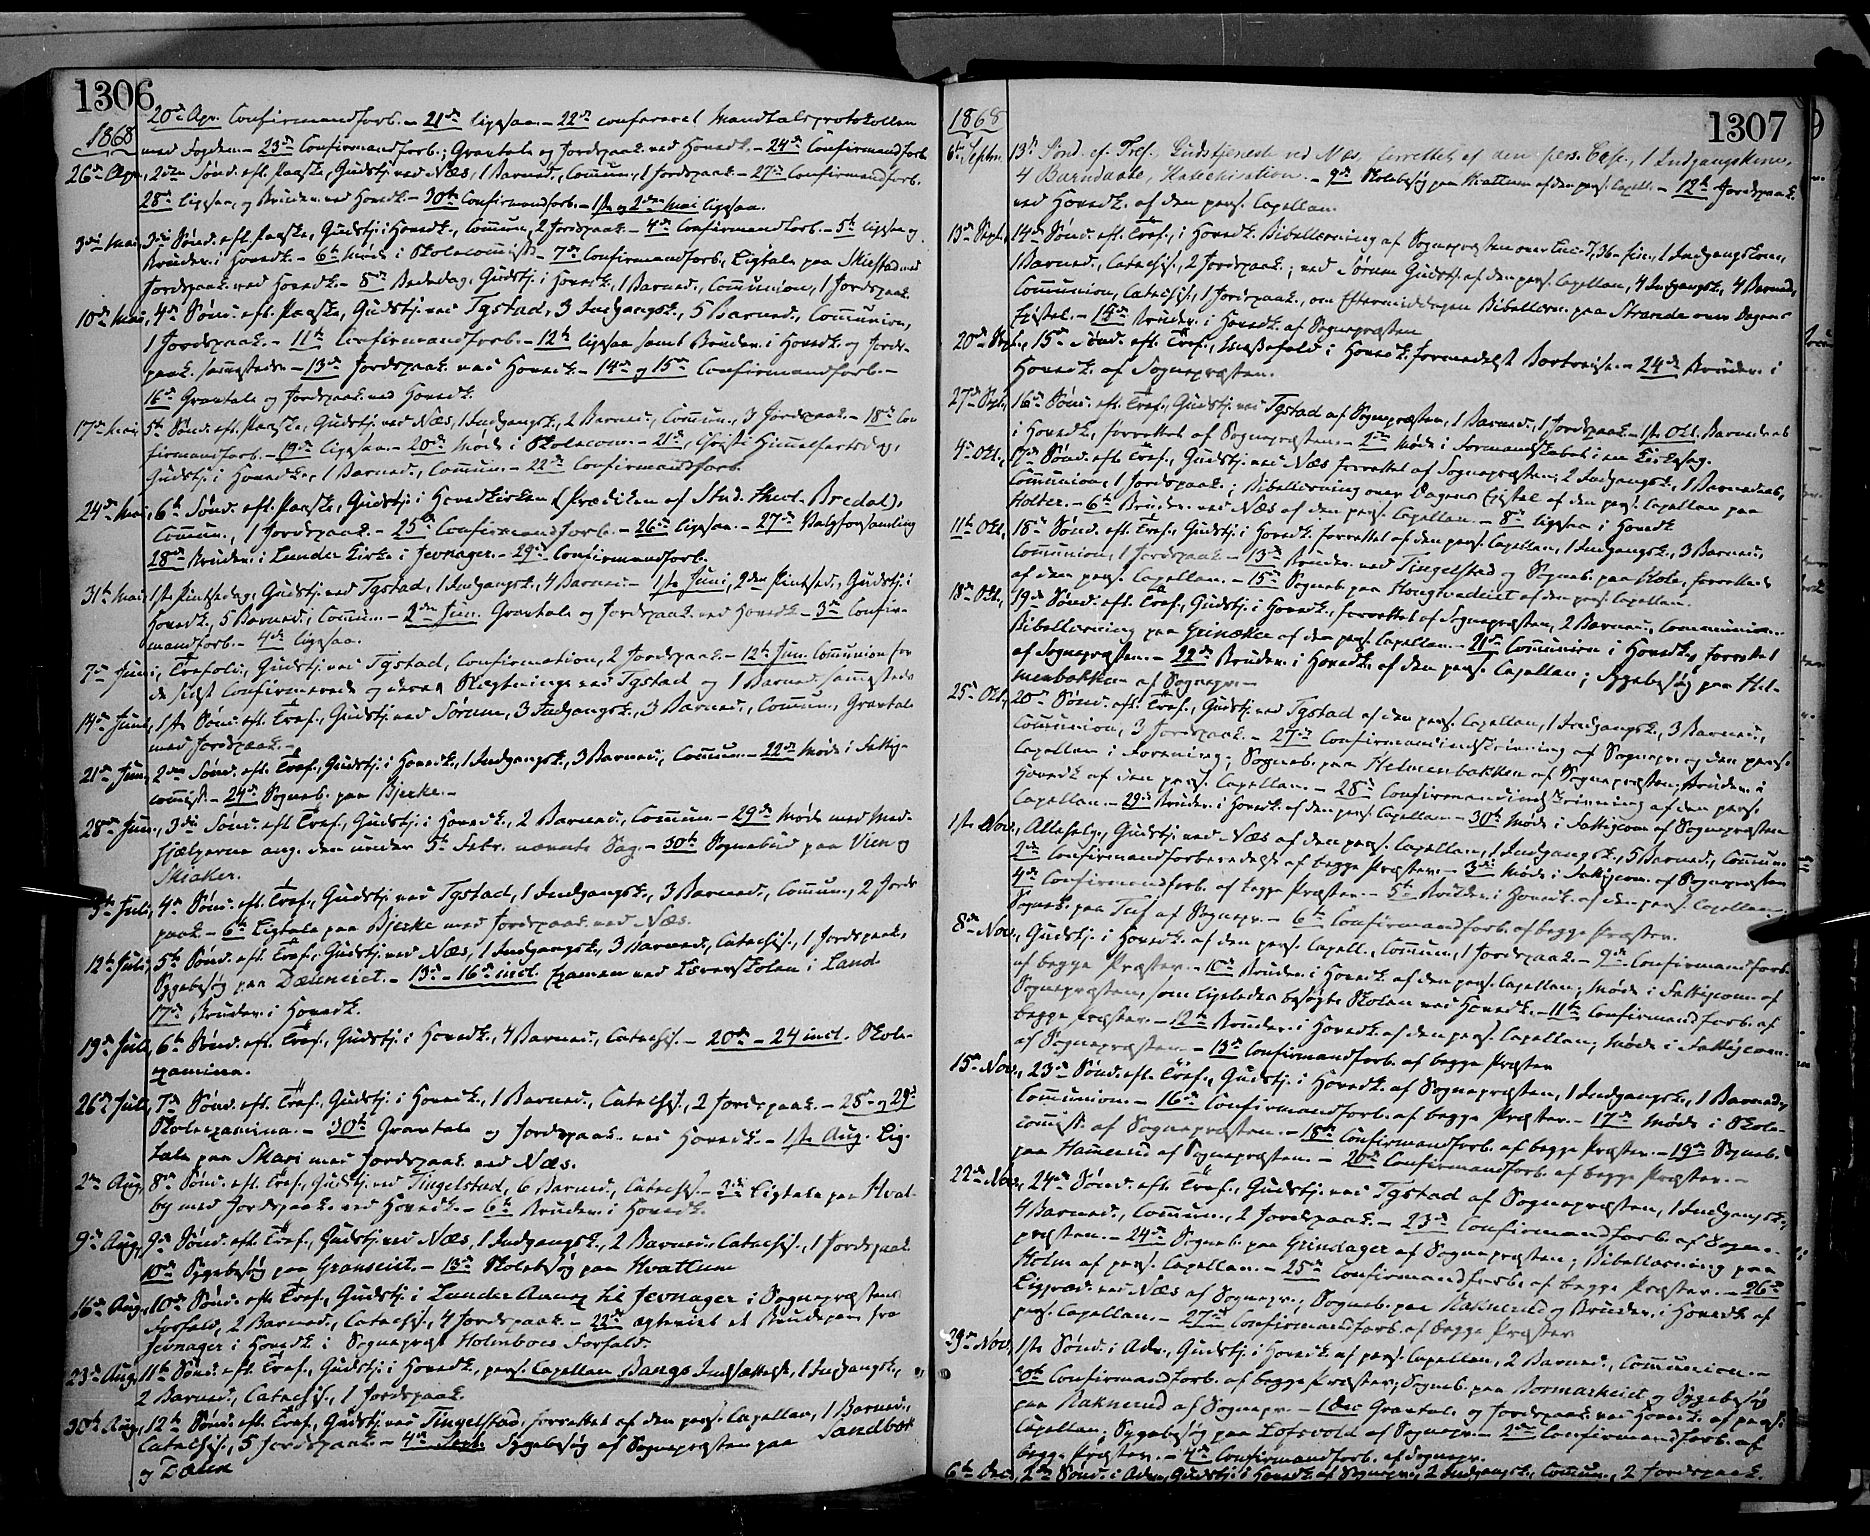 1306
1868
20de Apr. Confirmandforb. – 21de ligesaa. – 22de confereret Mandtalsprotokollen
med Fogden. – 23de Confirmandforb.; Gravtale og Jordspaak. ved Hovedk. – 24de Confirmandforb.
26de Apr., 2den Sønd. eft. Paaske, Gudstj. ved Næs, 1 Barned., Commun., 1 Jordspaak. – 27de Confirmandforb.
28de ligesaa, og Brudev. ved Hovedk. – 30te Confirmandforb. – 1ste og 2den Mai ligesaa.
3die Mai, 3die Sønd. eft. Paaske, Gudstj. i Hovedk., Commun., 2 Jordspaak. – 4de Confirmandforb. – 5te ligesaa og
Brudev. i Hovedk. – 6te Møde i Skolecommiss. – 7de Confirmandforb., Ligtale paa Skiestad med
Jordspaak. ved Hovedk. – 8de Bededag, Gudstj. i Hovedk., 1 Barned., Communion, 1 Jordspaak.
10de Mai, 4de Sønd. eft. Paaske, Gudstj. ved Tgstad, 3 Indgangsk., 5 Barned., Communion,
1 Jordspaak. – 11te Confirmandforb. – 12te ligesaa samt Brudev. i Hovedk. og Jords-
paak. sammesteds. – 13de Jordspaak. ved Hovedk. – 14de og 15de Confirmandforb. –
16de Gravtale og Jordspaak. ved Hovedk.
17de Mai, 5te Sønd. eft. Paaske, Gudstj. ved Næs, 1 Indgangsk., 2 Barned., Commun., 3 Jordspaak. – 18de Con-
firmandforb. – 19de ligesaa. – 20de Møde i Skolecom. – 21de, Christi Himmelfartsdag,
Gudstj. i Hovedk., 1 Barned., Commun. – 22de Confirmandforb.
24de Mai, 6te Sønd. eft. Paaske, Gudstj. i Hovedkirken (Prædiken af Stud. theol. Bredal),
Commun., 1 Jordspaak. – 25de Confirmandforb. – 26de ligesaa. – 27de Valgforsamling
28de Brudev. i Lunder Kirke i Jevnager. – 29de Confirmandforb.
31te Mai, 1ste Pintsedag, Gudstj. ved Tgstad, 1 Indgangsk., 4 Barned. – 1ste Juni, 2den Pintsed., Gudstj. i
Hovedk., 5 Barned., Commun. – 2den Jun. Gravtale og Jordspaak. ved Hovedk. – 3die Confir-
mandforb. – 4de ligesaa.
7de Juni, Trefold., Gudstj. ved Tgstad, Confirmation, 2 Jordspaak. – 12te Jun. Communion for
de sidst Confirmerede og deres Slægtninge ved Tgstad og 1 Barned. sammesteds
14de Juni, 1ste Sønd. eft. Tref., Gudstj. ved Sørum, 3 Indgangsk., 3 Barned., Commun., Gravtale
med Jordspaak. –
21de Jun., 2den Sønd. eft. Tref., Gudstj. i Hovedk., 1 Indgangsk., 3 Barned., Commun. – 22de Møde i Fattig-
commiss. – 24de Sogneb. paa Bjerke. –
28de Jun., 3die Sønd. eft. Tref., Gudstj. i Hovedk., 2 Barned., Commun. – 29de Møde med Med-
hjælperne ang. den under 5te Febr. nævnte Sag. – 30te Sognebud paa Vien og
Skiaker.
5te Juli, 4de Sønd. eft. Tref., Gudstj. ved Tgstad, 1 Indgangsk., 3 Barned., Commun., 2 Jords-
paak. – 6te Ligtale paa Bjerke med Jordspaak. ved Næs.
12te Juli, 5te Sønd. eft. Tref., Gudstj. ved Næs, 1 Indgangsk., 3 Barned., Catechis., 1 Jordspaak.,
Sygebesøg paa Dæhneiet. – 13de – 16de incl. Examen ved Lærerskolen i Land.
17de Brudev. i Hovedk.
19de Juli, 6te Sønd. eft. Tref., Gudstj. i Hovedk., 4 Barned., Catechis. – 20de – 24 incl. Skole-
examina.
26de Juli, 7de Sønd. eft. Tref., Gudstj. i Hovedk., 1 Barned., Catechis., 2 Jordspaak. – 28de og 29de
Skoleexamina. – 30te Gravtale og Jordspaak. ved Hovedk. – 1ste Aug. Lig-
tale paa Skari med Jordspaak. ved Næs.
2den Aug., 8de Sønd. eft. Tref., Gudstj. ved Tingelstad, 6 Barned., Catechis. – 3die Ligtale paa Hval-
by med Jordspaak. ved Hovedk. – 6te Brudev. i Hovedk.
9de Aug., 9de Sønd. eft. Tref., Gudstj. ved Næs, 1 Indgangsk., 2 Barned., Catechis., 1 Jordspaak.
10de Sygebesøg paa Granseiet. – 13de Skolebesøg paa Hvattum
16de Aug., 10de Sønd. eft. Tref., Gudstj. i Lunder Annex til Jevnager i Sognepræstens
Forfald, 2 Barned., Catechis., 4 Jordspaak. – 22de ægteviet et Brudepar fra
Jevnager i Hovedk. i Sognepræst Holmboes Forfald.
23de Aug., 11te Sønd. eft. Tref., Gudstj. i Hovedk., pers. Capellan Bangs Indsættelse, 1 Indgangsk.,
2 Barned., Catechis., 1 Jordspaak.
30te Aug., 12te Sønd. eft. Tref., Gudstj. ved Tingelstad, forrettet af den pers. Capellan, 1 Barned.,
Catechis., 5 Jordspaak. – 4de Sept. Sygebesøg af Sognepræsten paa Sandbæk
og Dæhn
1307
1868
6te Septbr. 13de Sønd. ef. Tref., Gudstjeneste ved Næs, forrettet af den pers. Cap., 1 Indgangskone,
4 Barndaabe, Katechisation. – 9de Skolebesøg paa Hvattum af den pers. Capell. – 12te Jordspaak.
ved Hovedk. af den pers. Capellan.
13de Sept., 14de Sønd. eft. Tref., i Hovedk. Bibellæsning af Sognepræsten over Luc. 7,36–fin., 1 Indgangskone,
1 Barned., Catechis., 2 Jordspaak.; ved Sørum Gudstj. af den pers. Capellan, 4 Indgangsk., 4 Barned.,
Communion, Catechis., 1 Jordspaak., om Eftermiddagen Bibellæsn. paa Strande over Dagens
Epistel. – 15de Brudev. i Hovedk. af Sognepræsten
20de Sept., 15de Sønd. eft. Tref., Messefald i Hovedk. formedelst Bortreise. – 24de Brudev. i
Hovedk. af Sognepræsten.
27de Sept., 16de Sønd. eft. Tref., Gudstj. ved Tgstad af Sognepræsten, 1 Barned., 1 Jordspaak. – 1ste Oct. Barnedaab
i Hovedk., forrettet af Sognepræsten. – 2den Møde i Formandskabet i en Kirkesag.
4de Oct., 17de Sønd. eft. Tref., Gudstj. ved Næs forrettet af Sognepræsten, 2 Indgangsk., 1 Barnedaab,
Communion, 1 Jordspaak.; Bibellæsning over Dagens Epistel af den pers. Capellan paa
Holter. – 6te Brudev. ved Næs af den pers. Capellan. – 8de ligesaa i Hovedk.
11te Oct., 18de Sønd. eft. Tref., Gudstj. i Hovedk. forrettet af den pers. Capellan, 1 Indgangsk., 3 Barned.,
Communion, 1 Jordspaak. – 13de Brudev. ved Tingelstad og Sogneb. paa Hole, forrettede
af den pers. Capellan. – 15de Sogneb. paa Haugsvedeiet af den pers. Capellan.
18de Oct., 19de Sønd. eft. Tref., Gudstj. i Hovedk., forrettet af Sognepræsten, 2 Barned., Communion.
Bibellæsning paa Grinakker af den pers. Capellan. – 21de Communion i Hovedk., forrettet
af Sognepræsten. – 22de Brudev. i Hovedk. af den pers. Capellan; Sygebesøg paa Hel-
menbakken af Sognepr. –
25de Oct., 20de Sønd. eft. Tref., Gudstj. ved Tgstad af den pers. Capellan, 1 Indgangsk., 3 Barned.,
Communion, 3 Jordspaak. – 27de Confirmandindskrivning af Sognepr. og den pers.
Capellan i Forening; Sogneb. paa Helmenbakken af Sognepræsten, Brudev. i
Hovedk. af den pers. Capellan. – 28de Confirmandindskrivning af den pers.
Capellan. – 29de Brudev. i Hovedk. af den pers. Capellan. – 30te Møde i Fattigcom. af Sognepræsten
1ste Nov., Allehelg., Gudstj. ved Næs af den pers. Capellan, 1 Indgangsk., 5 Barned., Commun.
2den Confirmandforberedelse af begge Præster. – 3die Møde i Fattigcom. af Sognepræsten
4de Confirmandforb. af begge Præster. – 5te Brudev. i Hovedk. af den pers. Capellan.
Sogneb. paa Tuf af Sognepr. – 6te Confirmandforb. af begge Præster.
8de Nov., Gudstj. i Hovedk. af den pers. Capell., Commun., 1 Jordspaak. – 9de Confirmandforb.
af begge Præster. – 10de Brudev. i Hovedk. af den pers. Capellan; Møde i Fattigcom. af
Sognepræsten, som ligeledes besøgte Skolen ved Hovedk. – 11te Confirmandforb. af
begge Præster. – 12te Brudev. i Hovedk. af den pers. Capellan; Møde i Fattigcom.
af Sognepræsten. – 13de Confirmandforb. af begge Præster
15de Nov., 23de Sønd. eft. Tref., Gudstj. i Hovedk. af Sognepræsten, 1 Indgangsk., 1 Barned.,
Communion. – 16de Confirmandforb. af begge Præster. – 17de Møde i Skole-
commiss. af Sognepræsten. – 18de Confirmandforb. af begge Præster. – 19de Sogneb.
paa Hannerud af Sognepræsten. – 20de Confirmandforb. af begge Præster. –
22de Nov., 24de Sønd. eft. Tref., Gudstj. ved Tgstad af Sognepræsten, 1 Indgangsk.,
4 Barned., Commun., 2 Jordspaak. – 23de Confirmandforb. af Sogne-
præsten. – 24de Sogneb. paa Grindager af Sognepræsten; Bibellæsning paa
Holm af pers. Capellan. – 25de Confirmandforb. af begge Præster. – 26de
Ligpræd. ved Næs af Sognepr.; Sogneb. paa Raknerud og Brudev. i Hovedk. af
pers. Capellan. – 27de Confirmandforb. af begge Præster
29de Nov., 1ste Sønd. i Adv., Gudstj. i Hovedk. af pers. Capellan, 2 Barned., Communion. –
30te Confirmandforb. af begge Præster; Sogneb. paa Bormarkeiet og Sygebesøg
paa Raknerud af Sognepr. – 1 Dec. Gravtale og Jordspaak. ved Hovedk. af pers.
Capellan; Sygebesøg paa Lotsvold af Sognepr. – 2den Confirmandforb. af
begge Præster. – 4de Confirmandforb. af Sognepr.
6te Dec., 2den Sønd. i Adv., Gudstj. i Hovedk. af Sognepr., 2 Indgangsk., Commun., 2 Jordspaak.